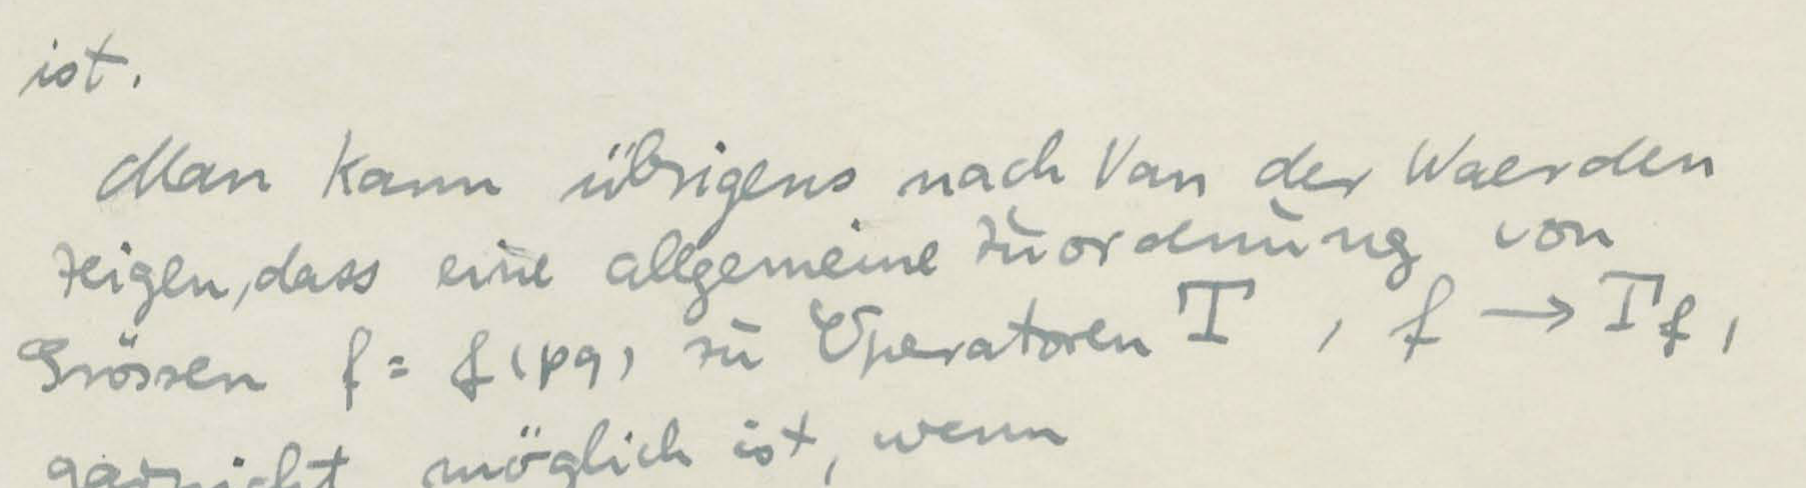 ist.
Man kann übrigens nach Van der Waerden
zeigen, dass eine allgemeine Zuordnung von
Grössen f = f(pq) zu Operatoren T, f → T_f,
garnicht möglich ist, wenn